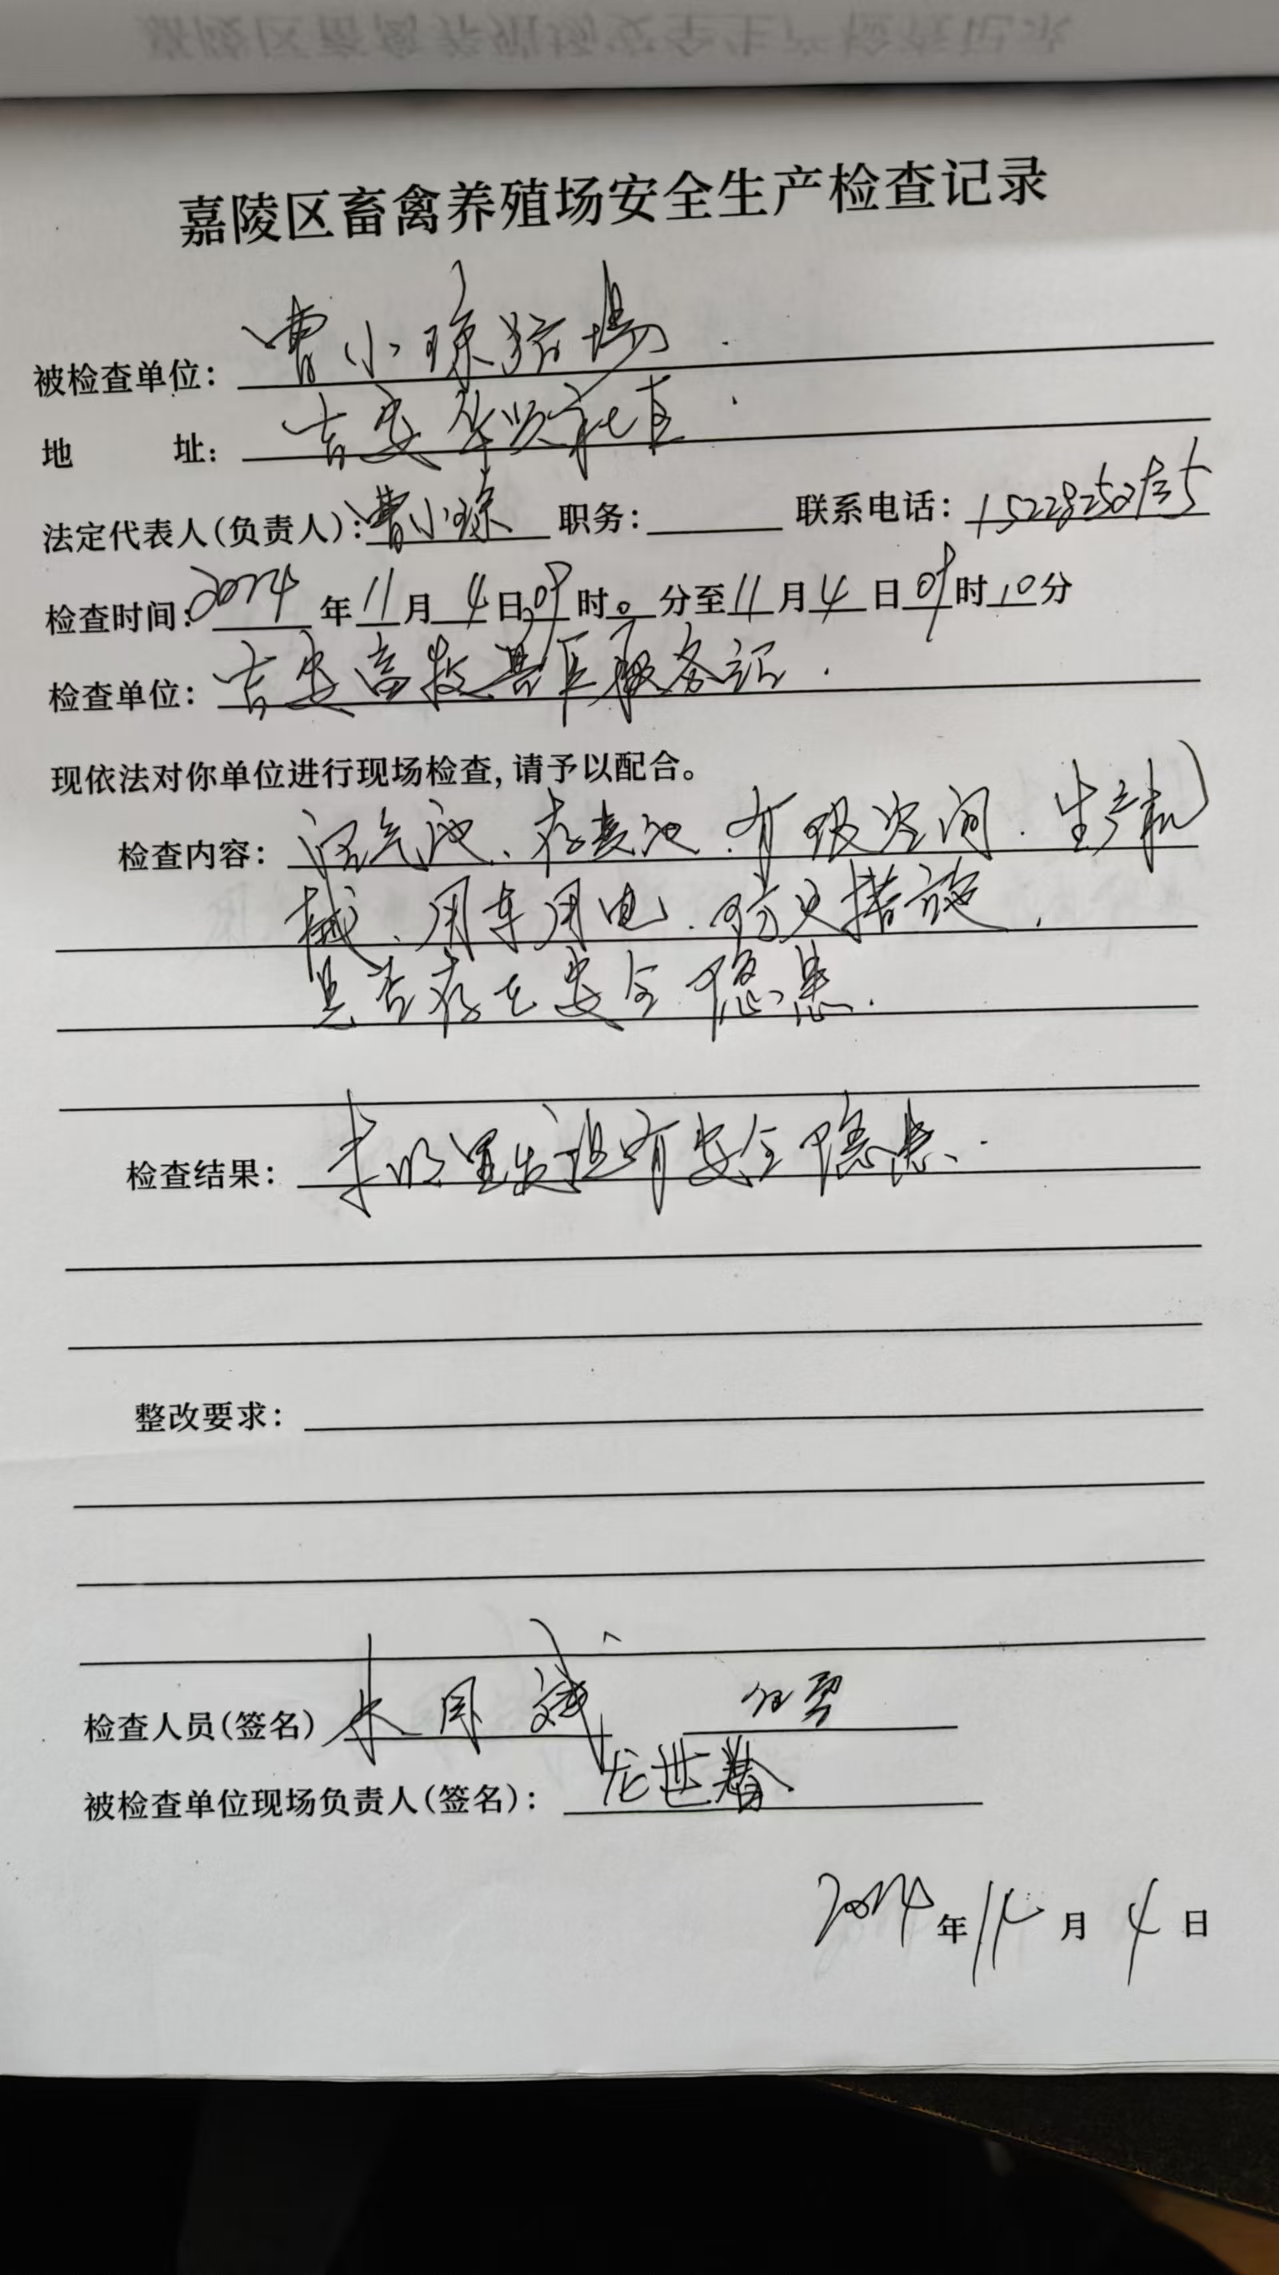 嘉陵区畜禽养殖场安全生产检查记录
被检查单位：曹小琼猪場
地 址：吉安华兴社区
法定代表人(负责人)：曹小琼 职务： 联系电话：
检查时间：2024年11月4日09时0分至11月4日09时10分
检查单位：吉安畜牧兽医服务站
现依法对你单位进行现场检查，请予以配合。
检查内容：沼气池、存粪池、有限空间、生产机
械、用车用电、防火措施，
是否存在安全隐患．
检查结果：未明显发现有安全隐患．
整改要求：
检查人员(签名)
被检查单位现场负责人(签名)：龙世春
2024年11月4日